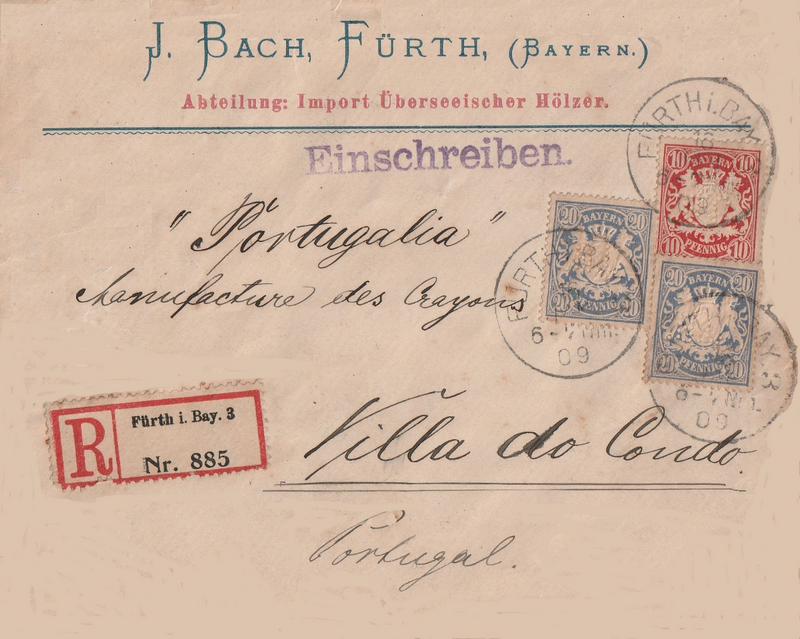 J. BACH, FÜRTH, (BAYERN.)
Abteilung: Import Überseeischer Hölzer.
Einschreiben.
FÜRTH i. BAY.
10 BAYERN 10
10 PFENNIG 10
"Portugalia"
20 BAYERN 20
20 PFENNIG 20
20 BAYERN 20
20 PFENNIG 20
Manufacture des Crayons
FÜRTH i. BAY.
6-7 Nm.
09
BAY. 3
6-7 Nm.
09
R Fürth i. Bay. 3
Nr. 885
Villa do Condo.
Portugal.